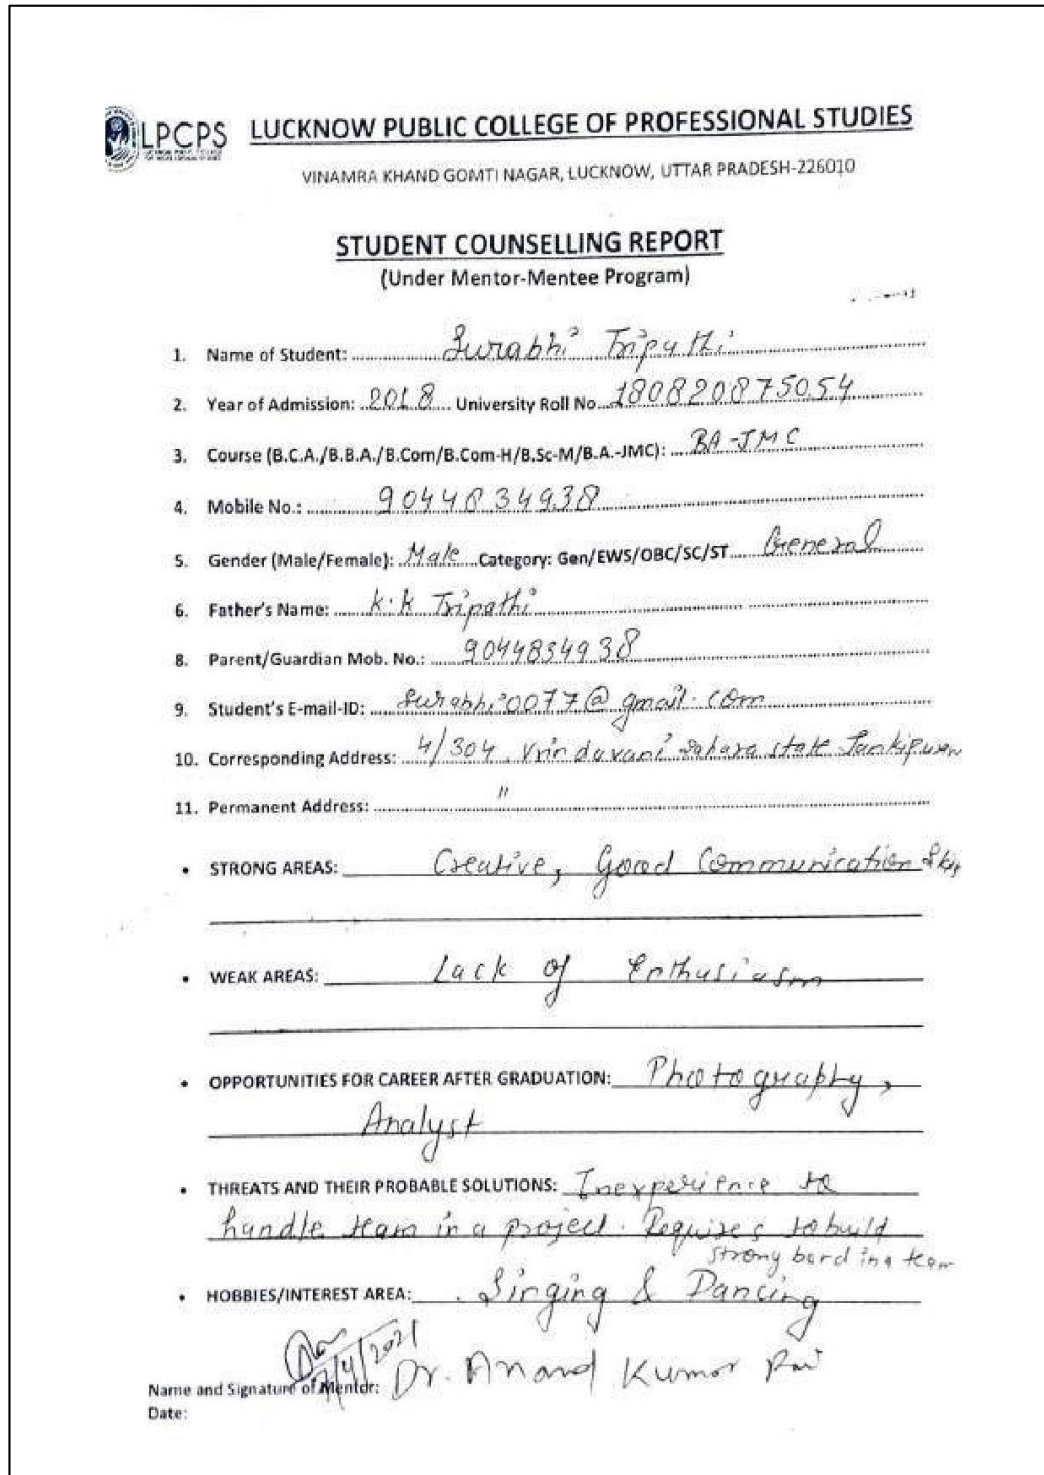 LPCPS LUCKNOW PUBLIC COLLEGE OF PROFESSIONAL STUDIES
VINAMRA KHAND GOMTI NAGAR, LUCKNOW, UTTAR PRADESH-226010
STUDENT COUNSELLING REPORT
(Under Mentor-Mentee Program)
1. Name of Student: Surabhi Tripathi
2. Year of Admission: 2018 University Roll No 180820875054
3. Course (B.C.A./B.B.A./B.Com/B.Com-H/B.Sc-M/B.A.-JMC): BA-JMC
4. Mobile No.: 9044834938
5. Gender (Male/Female): Male Category: Gen/EWS/OBC/SC/ST General
6. Father's Name: K.K Tripathi
8. Parent/Guardian Mob. No.: 9044834938
9. Student's E-mail-ID: Surabhi0077@gmail.com
10. Corresponding Address: 4/304, Vrindavani Sahara state
11. Permanent Address: "
• STRONG AREAS: Creative, Good Communication
• WEAK AREAS: Lack of Enthusiasm
• OPPORTUNITIES FOR CAREER AFTER GRADUATION: Photography,
Analyst
• THREATS AND THEIR PROBABLE SOLUTIONS: Inexperience to
handle team in a project. Requires to build
strong bond in a team
• HOBBIES/INTEREST AREA: Singing & Dancing
/4/2021
Name and Signature of Mentor: Dr. Anand Kumar Rai
Date: